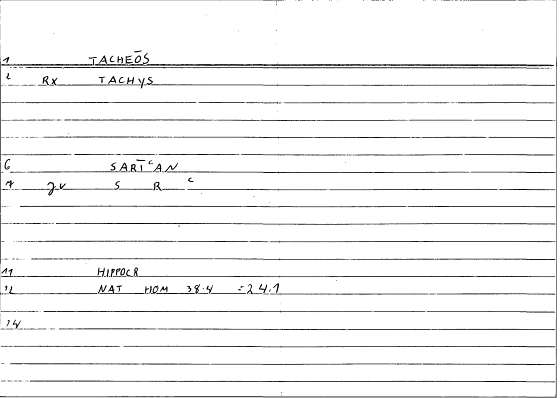 1 TACHEŌS
2 Rx TACHYS
6 SART̄ᶜAN
7 gv S R c
11 HIPPOCR
12 NAT HOM 38.4 =24.1
14